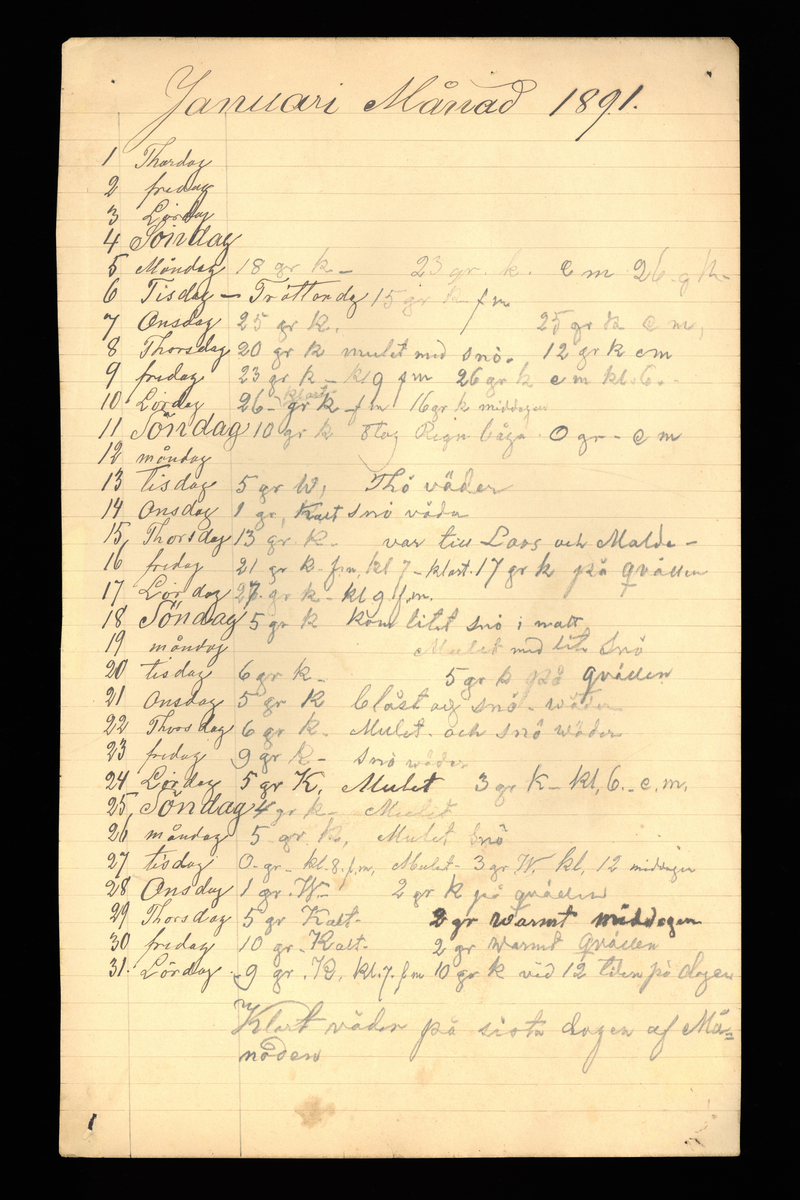 Januari Månad 1891.
1 Thordag
2 fredag
3 Lördag
4 Söndag
5 Måndag 18 gr k – 23 gr. k. e m 26. g k–
6 Tisdag – Tröttondg 15 gr k f m
7 Onsdag 25 gr k. 25 gr k e m,
8 Thorsdag 20 gr k mulet med snö. 12 gr k em
9 fredag 23 gr k – kl 9 f m 26 gr k e m kl. 6. -
klart
10 Lördag 26 – gr k – f m 16 gr k middagen
11 Söndag 10 gr k Slog Rign båga. 0 gr - e m
12 måndag
13 tisdag 5 gr W, Thö väder
14 Onsdag 1 gr, Kalt snö väder
15, Thorsdag 13 gr k – var till Loos och Malde –
16 fredag 21 gr k - f.m, kl 7 – klart. 17 gr k på qvällen
17 Lördag 27. gr k – kl 9. f.m.
18 Söndag 5 gr k kom litet snö i natt
19 måndag Mulet med lite snö
20 tisdag 6 gr k – 5 gr k på qvällen
21 Onsdag 5 gr K blåst og snö - wäder
22 Thorsdag 6 gr k – Mulet - och snö wäder
23 fredag 9 gr k – snö wäder
24 Lördag 5 gr K, Mulet 3 gr K – kl, 6. - e, m,
25, Söndag 4 gr k – Mulet
26 måndag 5 gr. k, Mulet Snö
27 tisdag 0 - gr - kl. 8. f, m, Mulet - 3 gr W. kl, 12 middagen
28 Onsdag 1 gr. W – 2 gr k på qvällen
29 Thorsdag 5 gr Kalt - 2 gr Warmt middagen
30 fredag 10 gr - Kalt - 2 gr Warmt qvällen
31. Lördag 9 gr. K, kl. 7. f m 10 gr k vid 12 tiden på dagen
Klart väder på sista dagen af Må=
naden